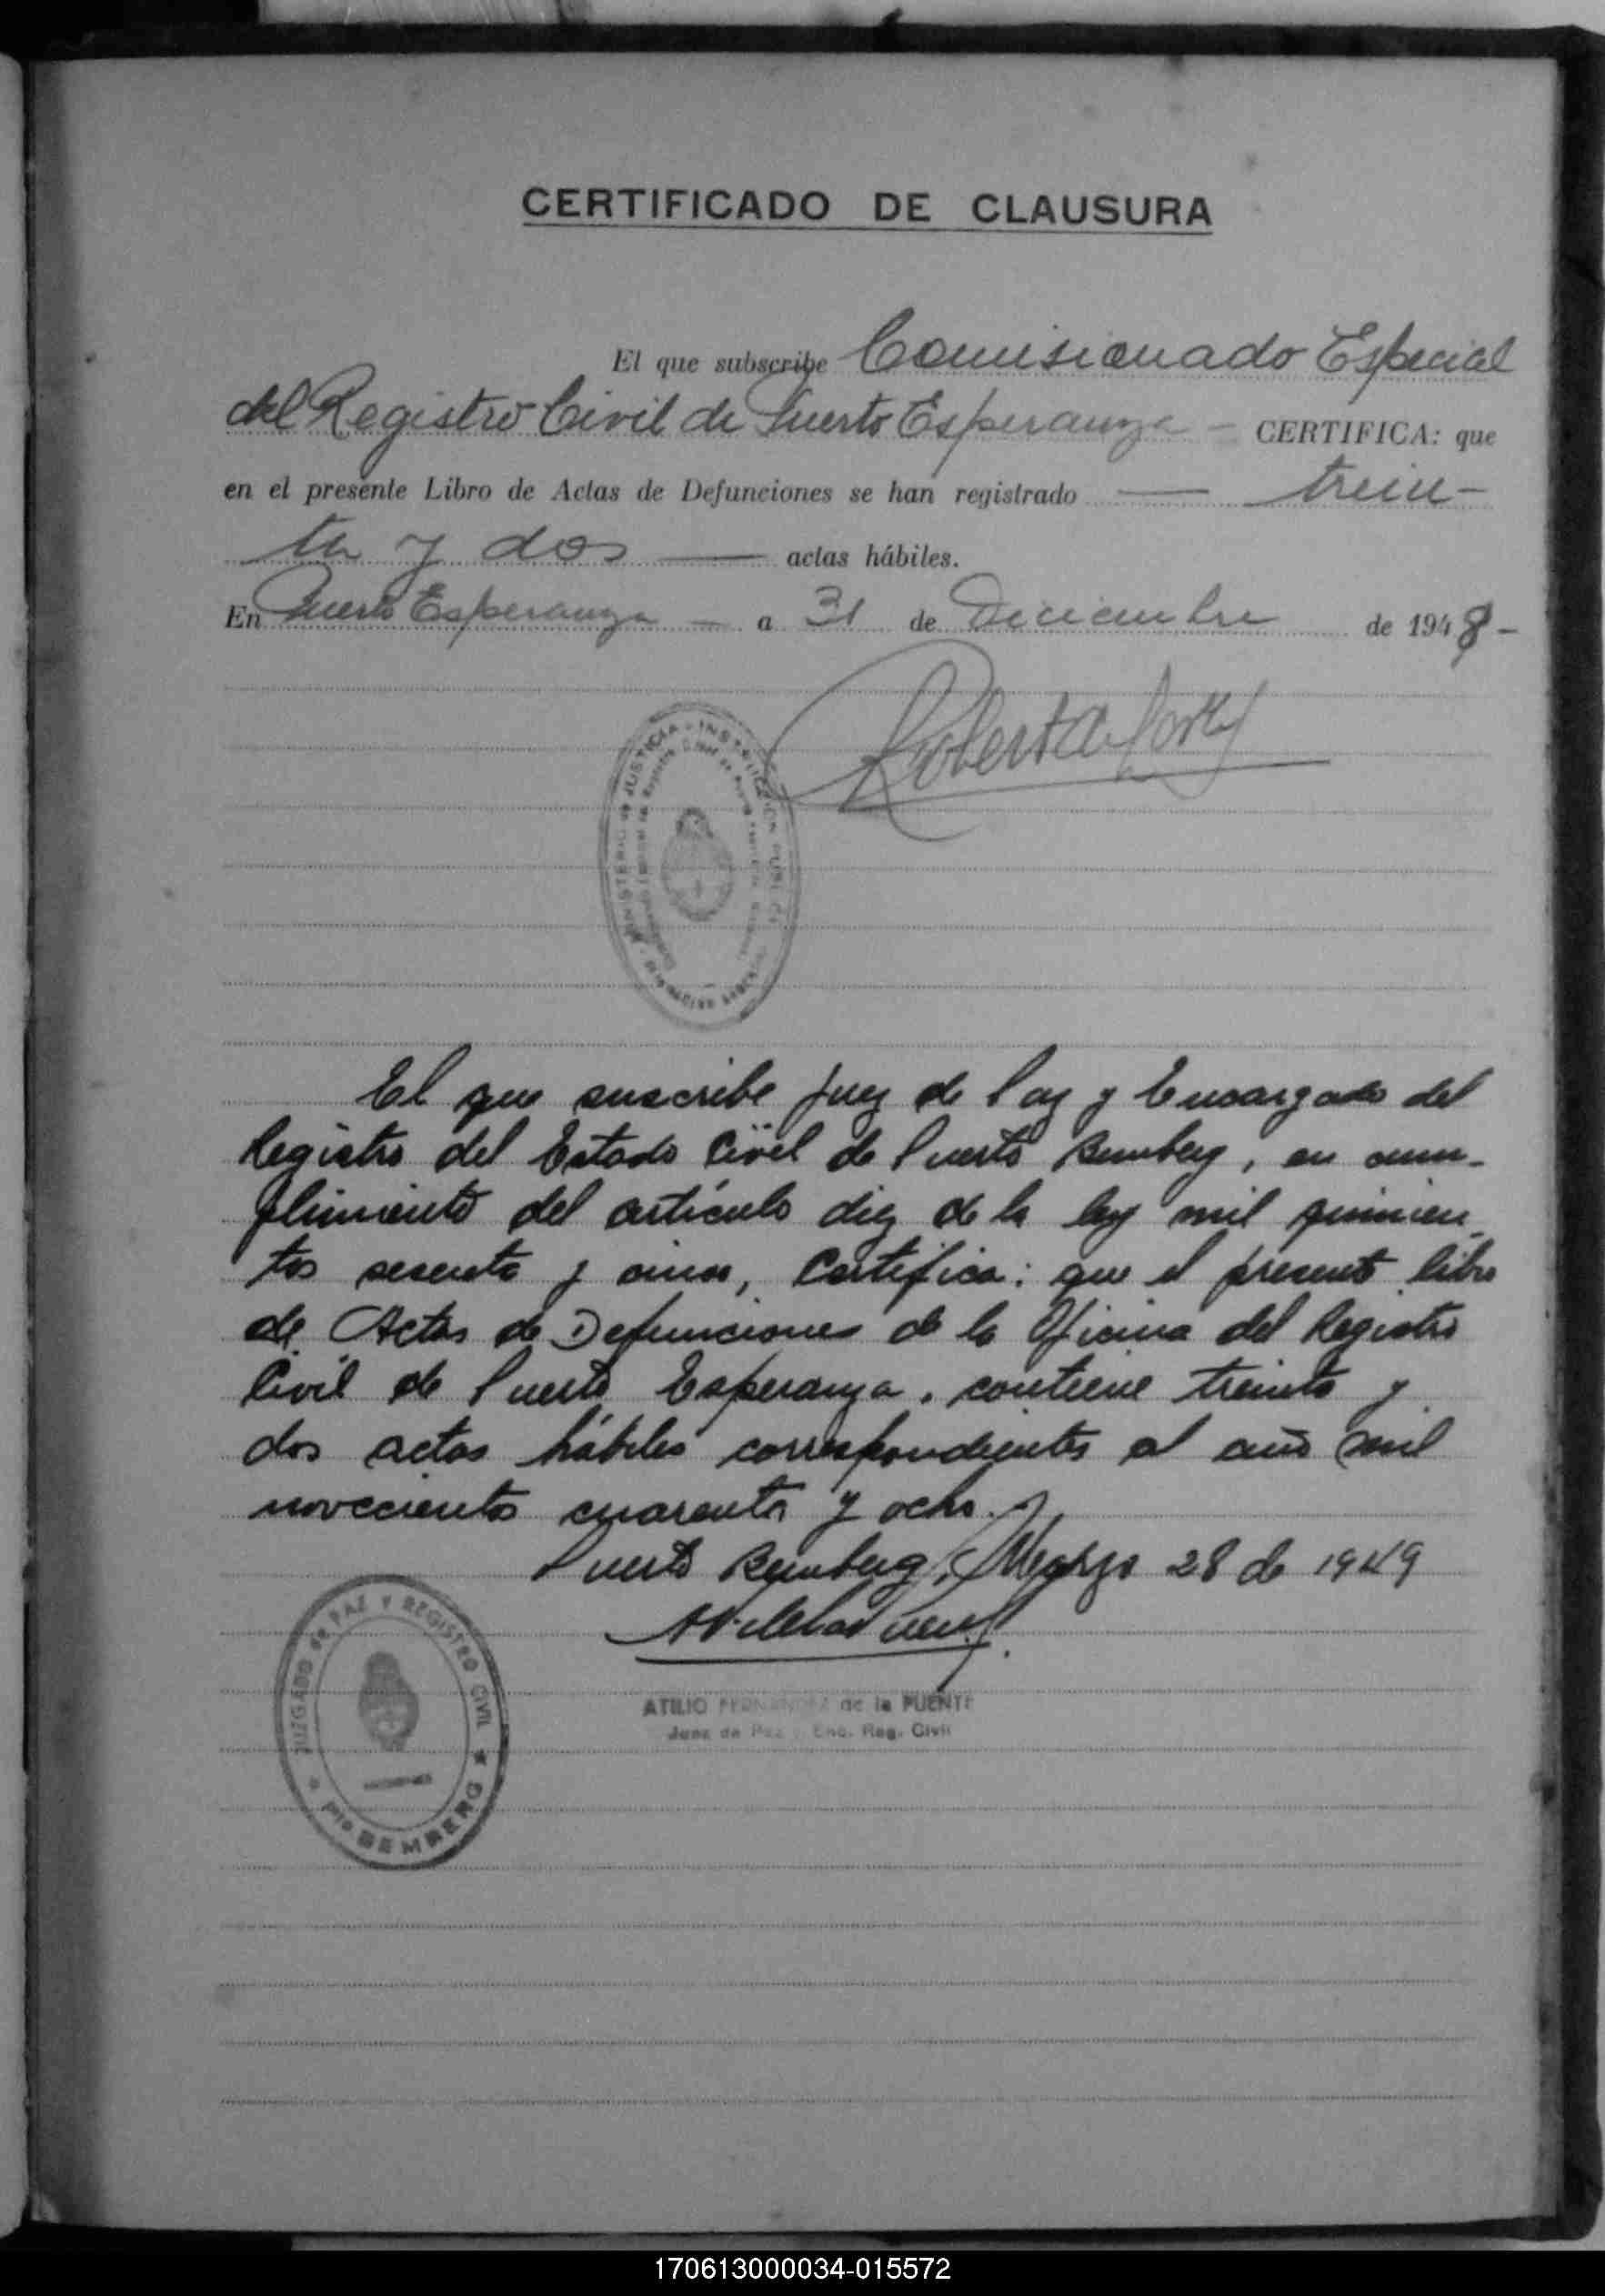 CERTIFICADO DE CLAUSURA
El que subscribe Comisionado Especial
del Registro Civil de Puerto Esperanza - CERTIFICA: que
en el presente Libro de Actas de Defunciones se han registrado — trein-
ta y dos — actas hábiles.
En Puerto Esperanza - a 31 de Diciembre de 1948-
MINISTERIO de JUSTICIA - INSTRUCCION PUBLICA
El que suscribe Juez de Paz y Encargado del
Registro del Estado Civil de Puerto Bemberg, en cum-
plimiento del artículo diez de la ley mil quinien-
tos sesenta y cinco, Certifica: que el presente libro
de Actas de Defunciones de la Oficina del Registro
Civil de Puerto Esperanza, contiene treinta y
dos actas hábiles correspondientes al año mil
novecientos cuarenta y ocho.
Puerto Bemberg, Marzo 28 de 1949
ATILIO FERNANDEZ de la PUENTE
Juez de Paz y Enc. Reg. Civil
JUZGADO de PAZ Y REGISTRO CIVIL
Pto. BEMBERG
170613000034-015572